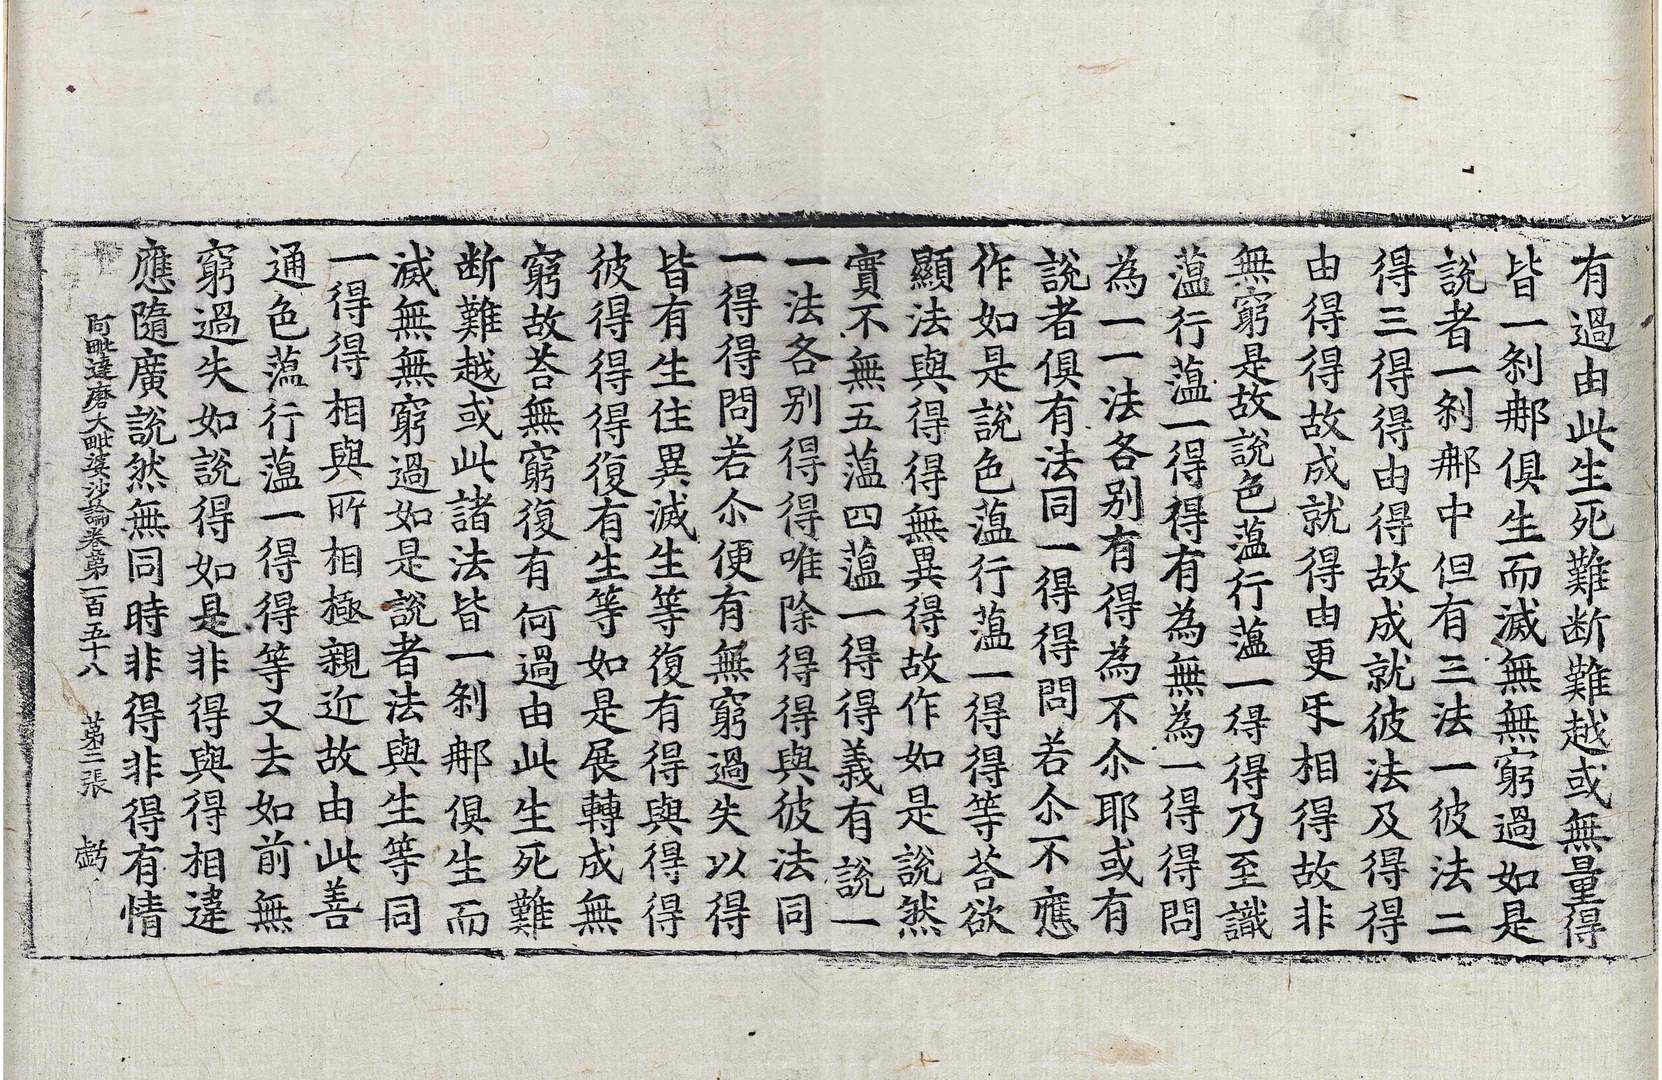 有過由此生死難断難越或無量得
皆一刹那俱生而滅無無窮過如是
說者一刹那中但有三法一彼法二
得三得得由得故成就彼法及得得
由得得故成就得由更㸦相得故非
無窮是故說色薀行薀一得得乃至識
薀行薀一得得有為無為一得得問
為一一法各别有得為不尒耶或有
說者俱有法同一得得問若尒不應
作如是說色薀行薀一得得等荅欲
顯法與得得無異得故作如是說然
實不無五薀四薀一得得義有說一
一法各别得得唯除得得與彼法同
一得得問若尒便有無窮過失以得
皆有生住異滅生等復有得與得得
彼得得得復有生等如是展轉成無
窮故荅無窮復有何過由此生死難
断難越或此諸法皆一刹那俱生而
滅無無窮過如是說者法與生等同
一得得相與所相極親近故由此善
通色薀行薀一得得等又去如前無
窮過失如說得如是非得與得相違
應隨廣說然無同時非得非得有情
阿毗達磨大毗婆沙論卷第一百五十八 第三張 虧